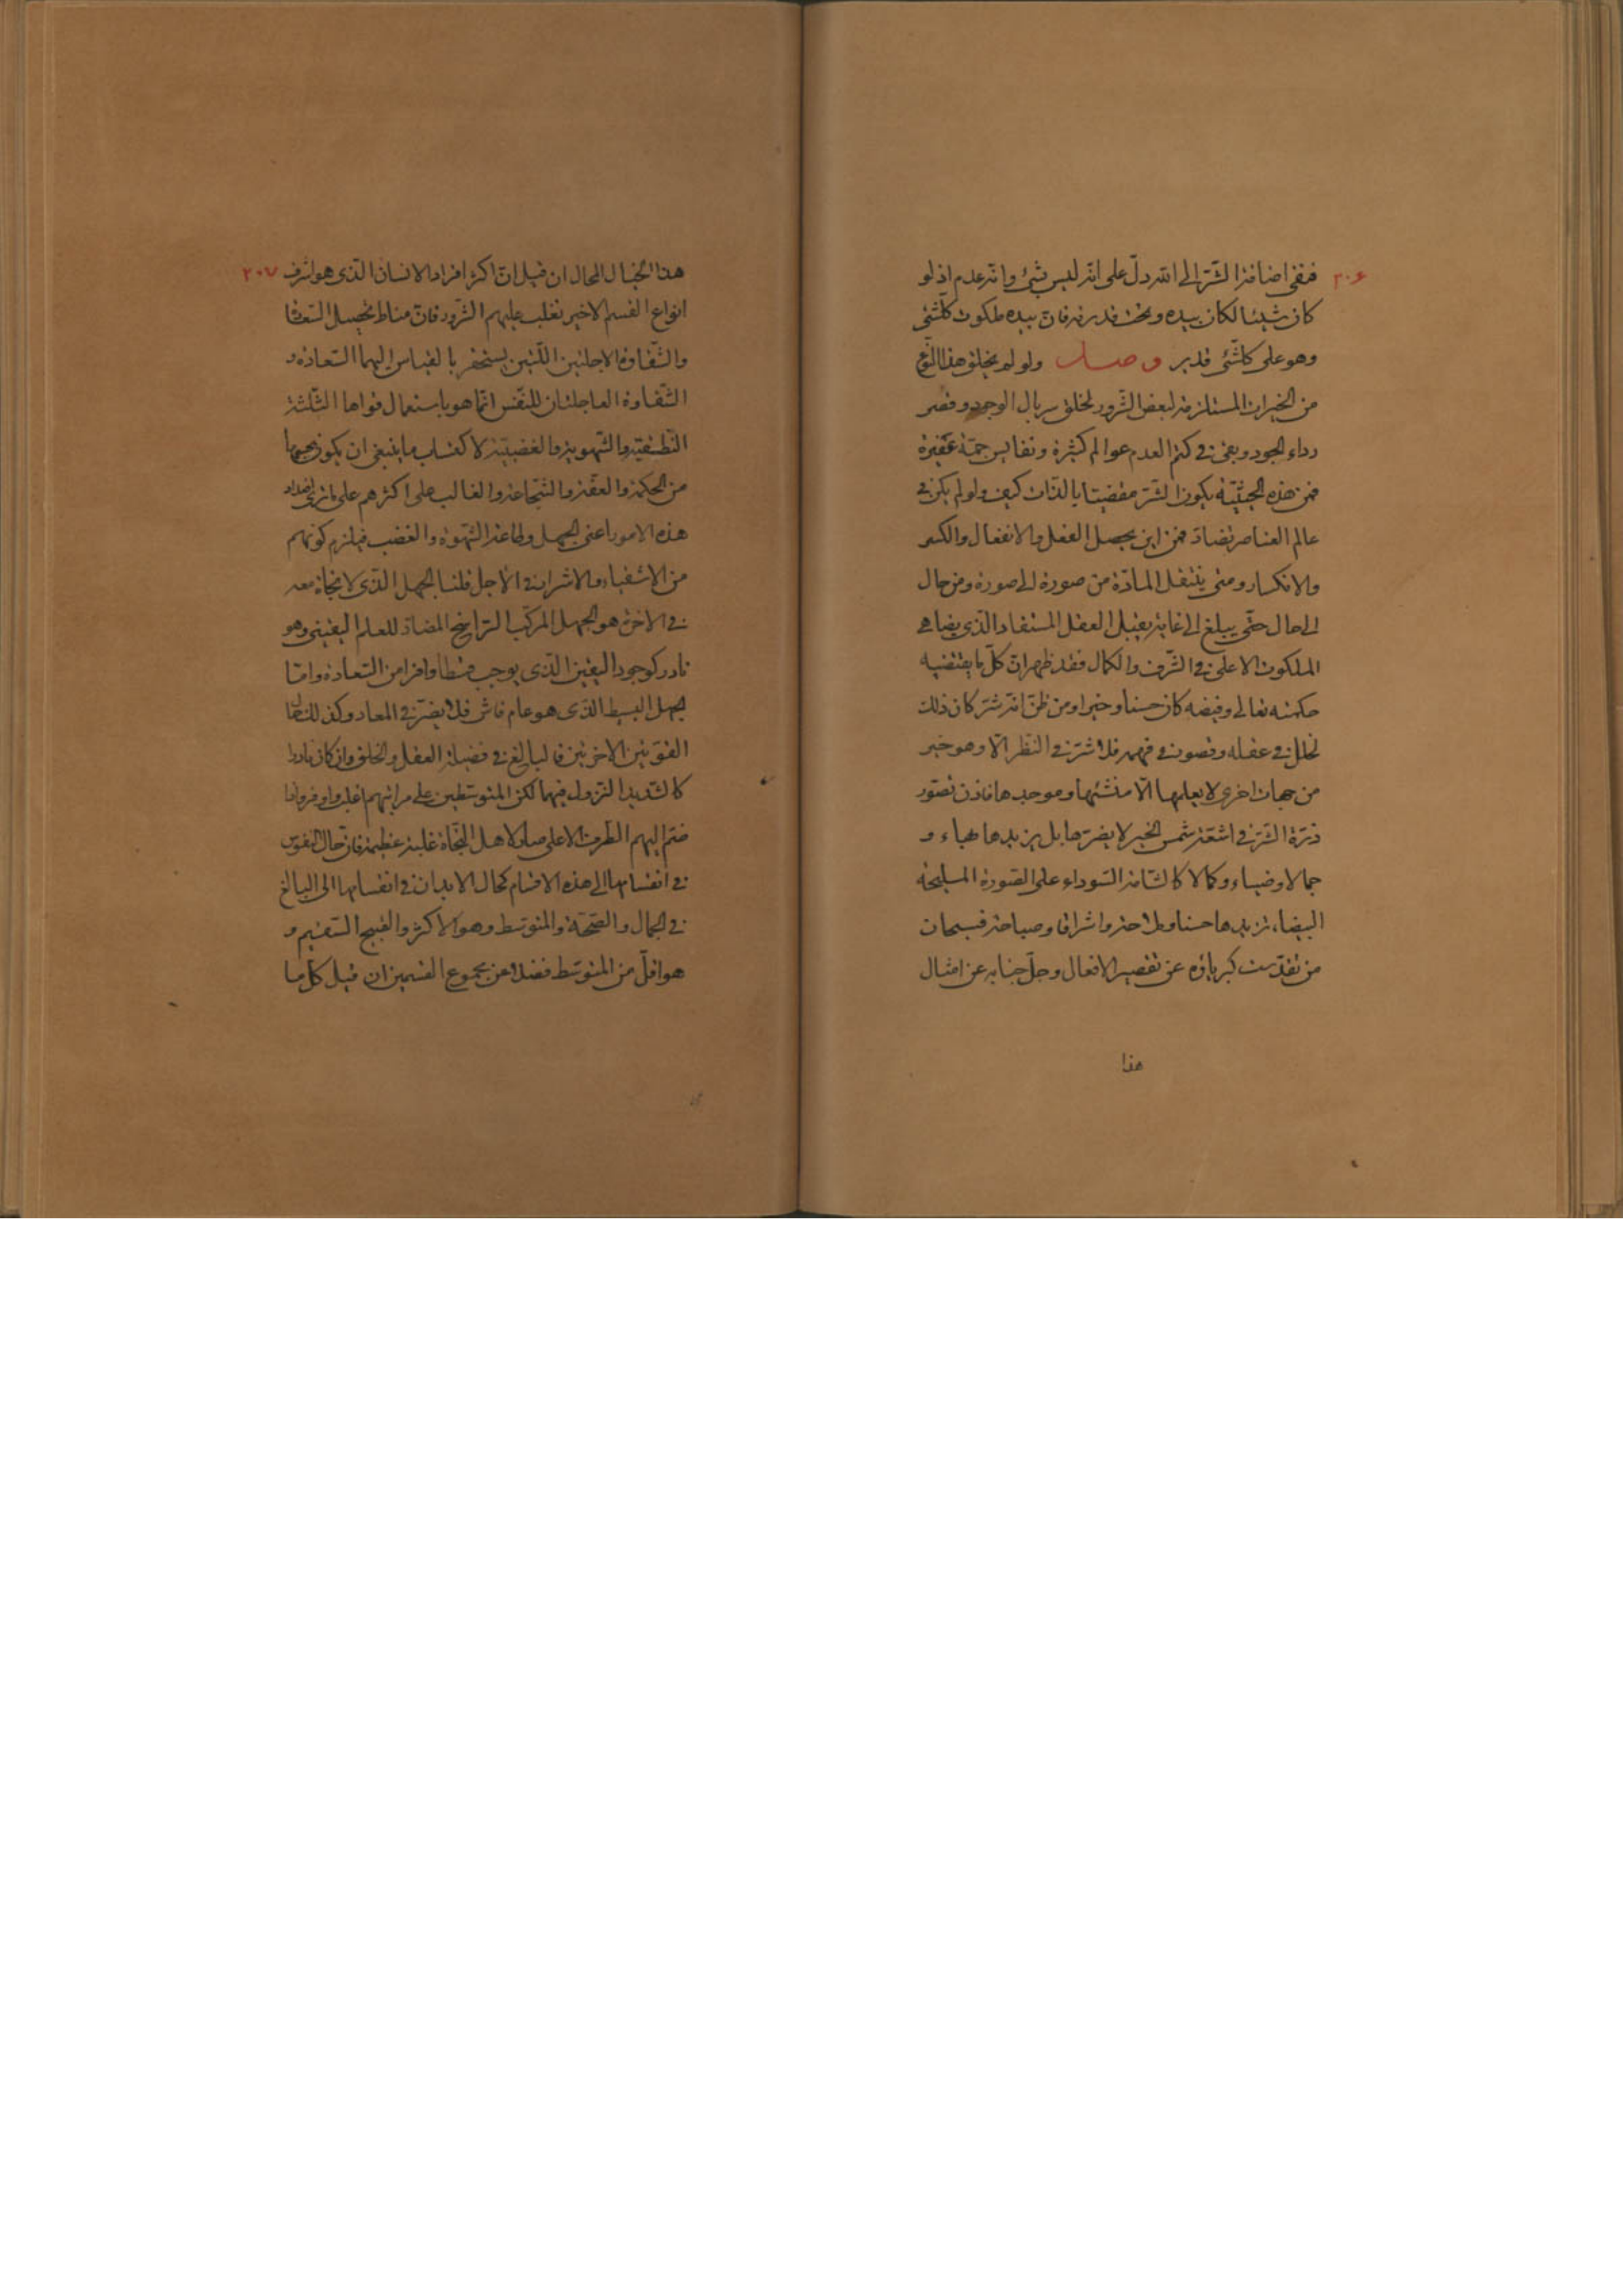 ٢٠٦
فنفى اضافة الشّرّ الى الله دلّ على انّه ليس بشئ وانّه عدم اذ لو
كان شيئا لكان بيده وتحت قدرته فانّ بيده ملكوت كلّشئ
وهو على كلّشئ قدير وصل ولو لم يخلق هذا النّوع
من الخيرات المستلزمة لبعض الشّرور لخلق سربال الوجود وقصر
رداء الجود وبقى فى كتم العدم عوالم كثيرة ونفايس جمّة غفيرة
فمن هذه الحيثيّة يكون الشّرّ مقضيّا بالذّات كيف ولو لم يكن فى
عالم العناصر تضادّ فمن اين يحصل الفعل والانفعال والكسر
والانكسار ومتى ينتقل المادّة من صورة الى صورة ومن حال
الى حال حتّى يبلغ الى غاية يقبل العقل المستفاد الّذى يضاهى
الملكوت الاعلى فى الشّرف والكمال فقد ظهر انّ كلّ ما يقتضيه
حكمته تعالى وفيضه كان حسنا وخيرا ومن ظنّ انّه شرّ كان ذلك
لخلل فى عقله وقصور فى فهمه فلا شرّ فى النّظر الّا وهو خير
من جهات اخرى لا يعلمها الّا منشئها وموجدها فاذن تصوّر
ذرّة الشّرّ فى اشعّة شمس الخير لا يضرّها بل يزيدها بهاء و
جمالا وضياء وكمالا كالشّامة السّوداء على الصّورة المليحة
البيضاء تزيدها حسنا وملاحة واشراقا وصباحة فسبحان
من تقدّست كبرياؤه عن تقصير الافعال وجلّ جنابه عن امثال
هذا
٢٠٧
هذا الخيال المحال ان قيل انّ اكثر افراد الانسان الّذى هو اشرف
انواع القسم الاخير تغلب عليهم الشّرور فانّ مناط تحصيل السّعادة
والشّقاوة الاجلتين اللّتين يستحقر بالقياس اليهما السّعادة و
الشّقاوة العاجلتان للنّفس انّما هو باستعمال قواها الثّلثة
النّطقيّة والشّهويّة والغضبيّة لاكتساب ما ينبغى ان يكون بحسبها
من الحكمة والعفّة والشّجاعة والغالب على اكثرهم على ما نرى اضداد
هذه الامور اعنى الجهل وطاعة الشّهوة والغضب فيلزم كونهم
من الاشقياء والاشرار فى الاجل قلنا الجهل الّذى لا نجاة معه
فى الاخرة هو الجهل المركّب الرّاسخ المضادّ للعلم اليقينى وهو
نادر كوجود اليقين الّذى يوجب قسطا وافرا من السّعادة وامّا
الجهل البسيط الّذى هو عام فاش فلا يضرّ فى المعاد وكذلك حال
القوّتين الاخريين فالبالغ فى فضيلة العقل والخلق وان كان نادرا
كالشّديد النّزول فيهما لكن المتوسّطين على مراتبهم اغلب واوفر واذا
ضمّ اليهم الطّرف الاعلى صار لاهل النّجاة غلبة عظيمة فانّ حال النّفوس
فى انقسامها الى هذه الاقسام كحال الابدان فى انقسامها الى البالغ
فى الجمال والصّحّة والمتوسّط وهو الاكثر والقبيح السّقيم و
هو اقلّ من المتوسّط فضلا عن مجموع القسمين ان قيل كلّ ما